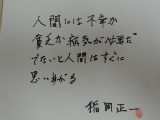 人間には不幸か
貧乏か病気が必要だ
でないと人間はすぐに
思い上がる
稲田正一